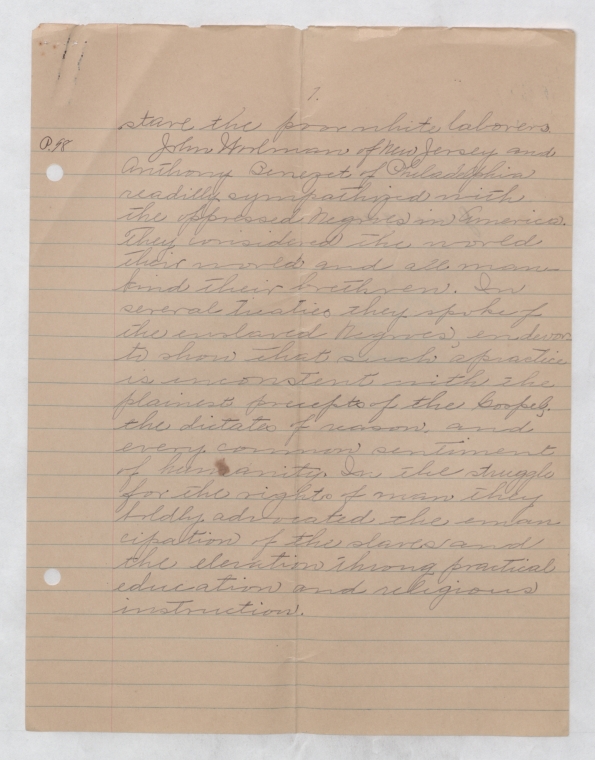 1.
starve the poor white laborers.
P.98
John Woolman of New Jersey and
Anthony Benezet of Philadelphia
readilly sympathized with
the oppressed Negroes in America.
They considered the world
their world and all man-
kind their brethren. In
several treaties they spoke of
the enslaved Negroes, endevor
to show that such a practice
is inconstent with the
plainest precepts of the Gospel,
the dictates of reason, and
every common sentiment
of humanity. In the struggle
for the rights of man they
boldly advocated the eman
cipation of the slaves and
the elevation through practical
education and religious
instruction.